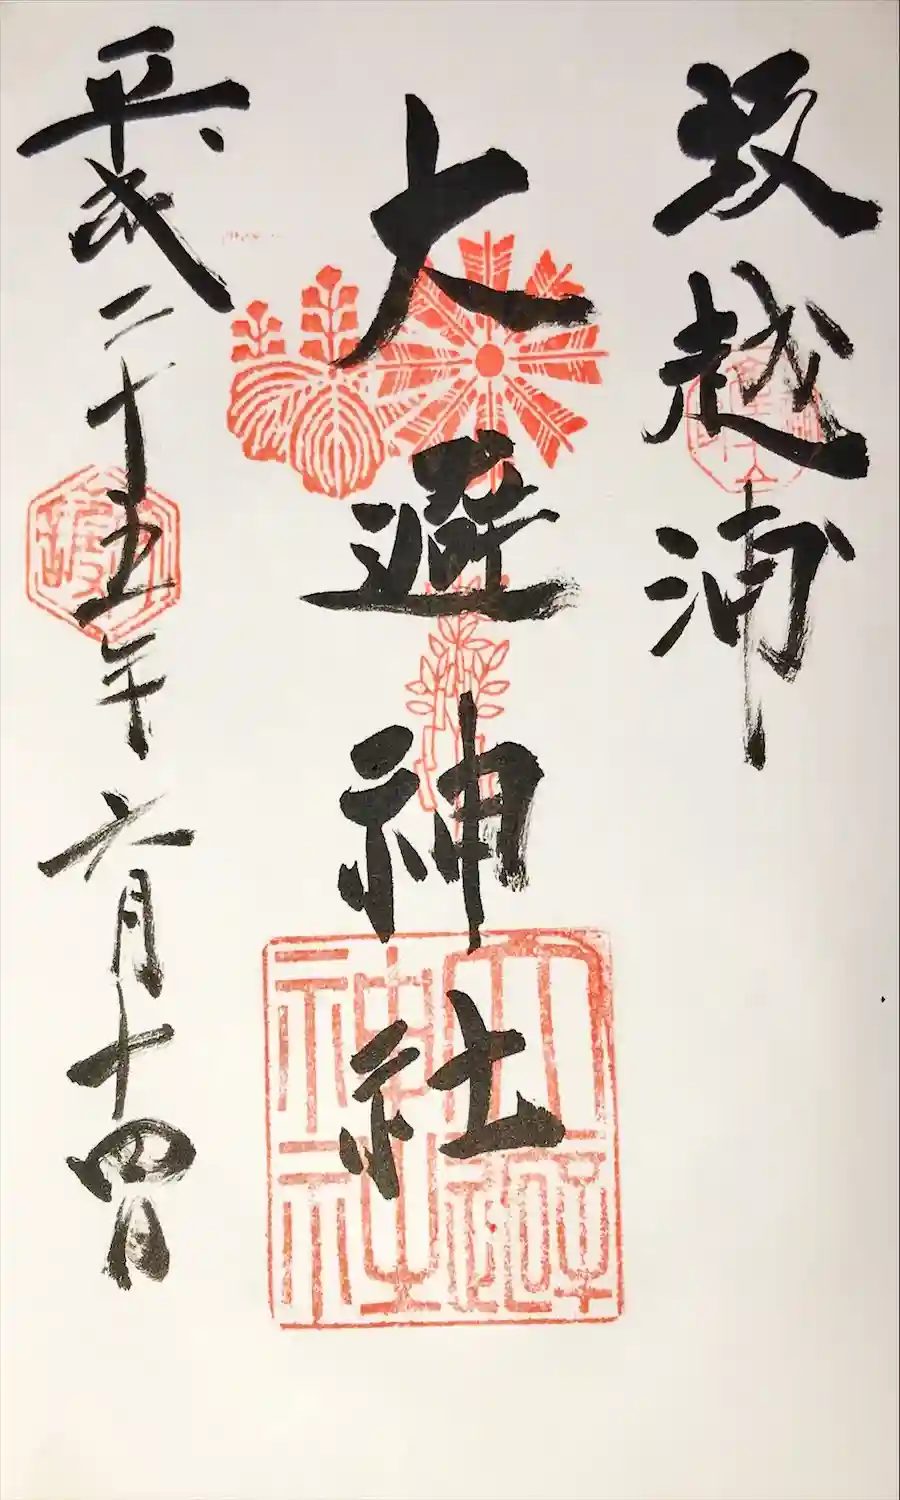 坂越浦
大避神社
平成二十五年六月十四日
大避神社